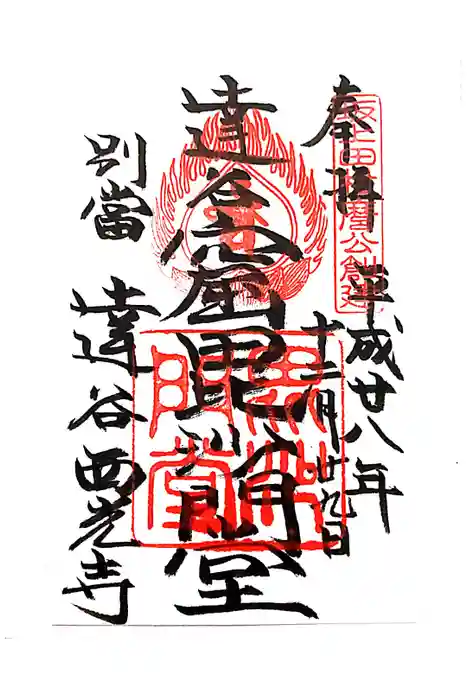 奉拝
坂上田村麿公創建
平成廿八年
十二月廿九日
達谷窟毘沙門堂
別當
達谷西光寺